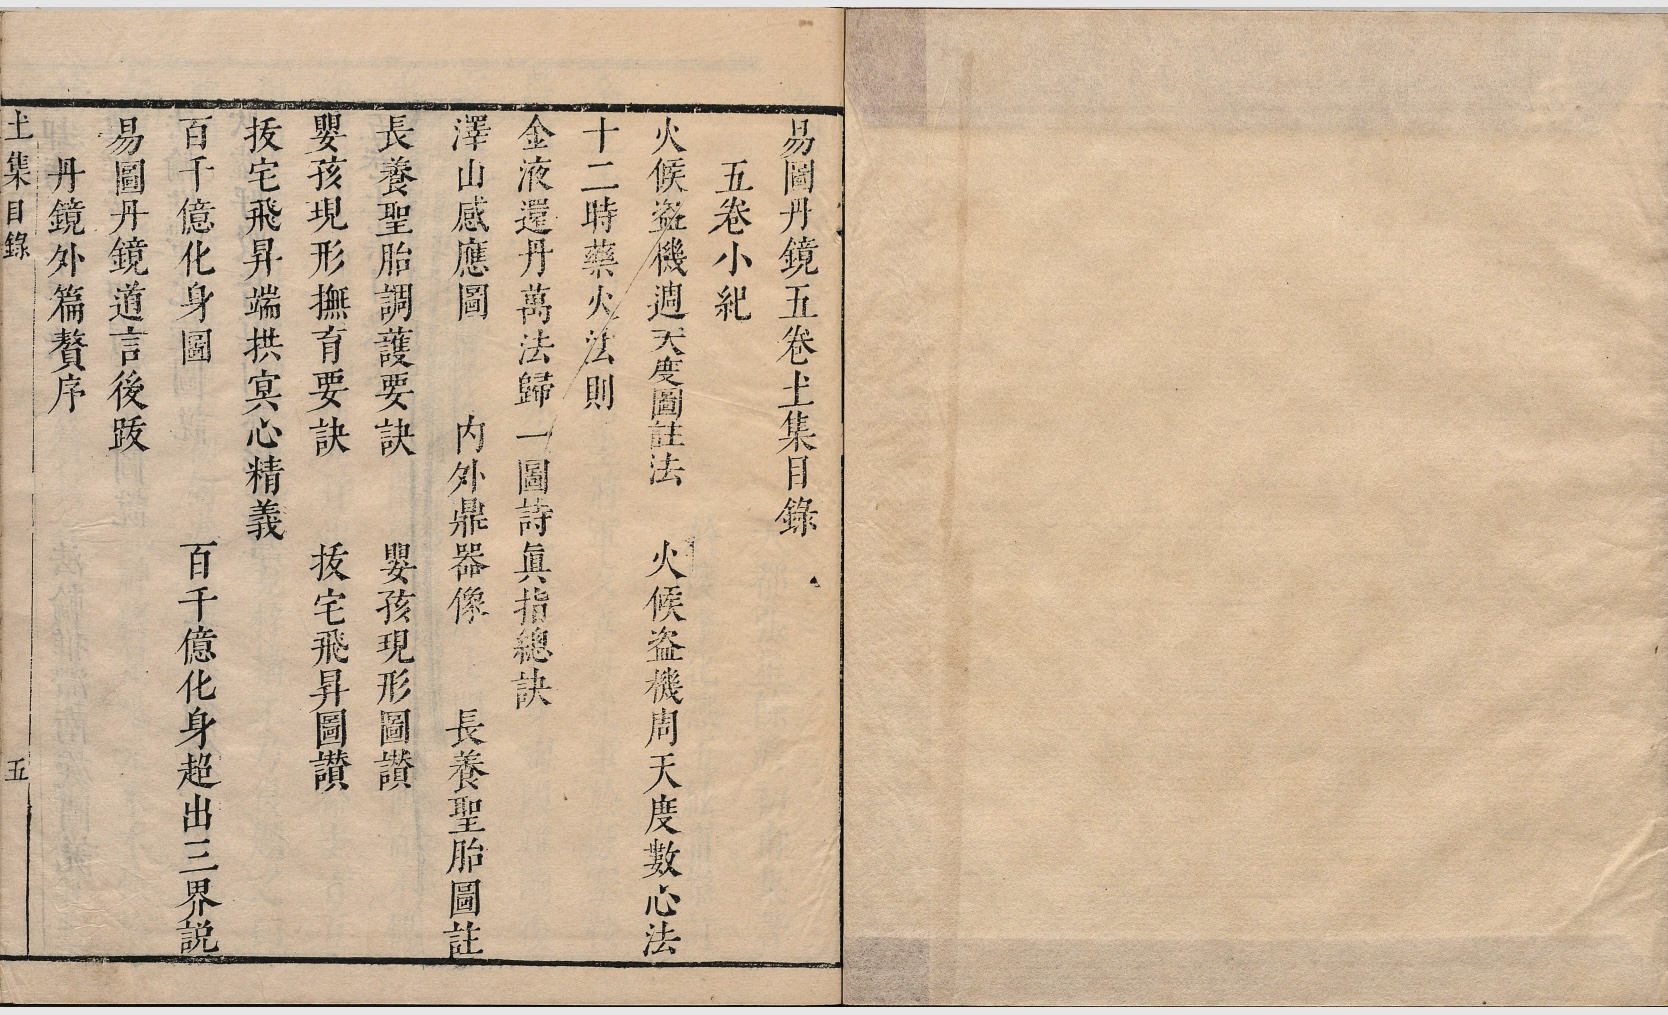 易圖丹鏡五卷土集目錄
五卷小紀
火候盜機週天度圖註法 火候盜機周天度數心法
十二時藥火法則
金液還丹萬法歸一圖詩眞指總訣
澤山感應圖 内外鼎器像 長養聖胎圖註
長養聖胎調護要訣 嬰孩現形圖讃
嬰孩現形撫育要訣 拔宅飛昇圖讃
拔宅飛昇端拱冥心精義
百千億化身圖 百千億化身超出三界説
易圖丹鏡道言後跋
丹鏡外篇贅序
土集目錄 五